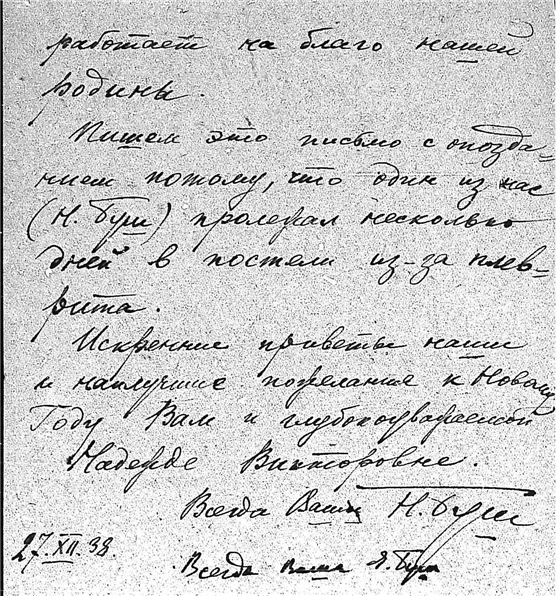 работает на благо нашей
родины.
Пишем это письмо с опозда-
нием потому, что один из нас
(Н. Буш) пролежал несколько
дней в постели из-за плев-
рита.
Искренние приветы наши
и наилучшие пожелания к Новому
Году Вам и глубокоуважаемой
Надежде Викторовне.
Всегда Ваш Н. Буш
27.XII.38.
Всегда ваша Е. Буш